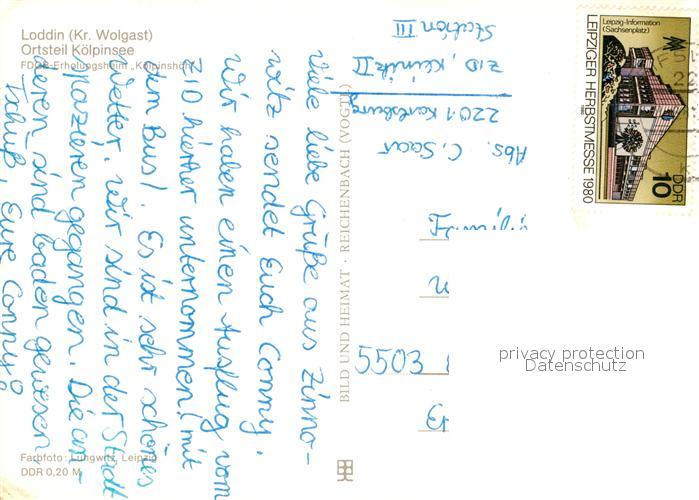 Loddin (Kr. Wolgast)
Ortsteil Kölpinsee
FDGB-Erholungsheim „Kölpinshöh"
Viele liebe Grüße aus Zinno-
witz sendet Euch Conny.
Wir haben einen Ausflug vom
ZID hierher unternommen (mit
dem Bus). Es ist sehr schönes
Wetter. Wir sind in der Stadt
spazieren gegangen. Die an-
deren sind baden gewesen
Tschüß, Eure Conny
Farbfoto: Lungwitz, Leipzig
DDR 0,20 M
BILD UND HEIMAT · REICHENBACH (VOGTL)
Abs. C. Saar
2201 Karlsburg
ZID, Klinik II
Station III
5503
Leipzig-Information
(Sachsenplatz)
LEIPZIGER HERBSTMESSE 1980
DDR
10
privacy protection
Datenschutz